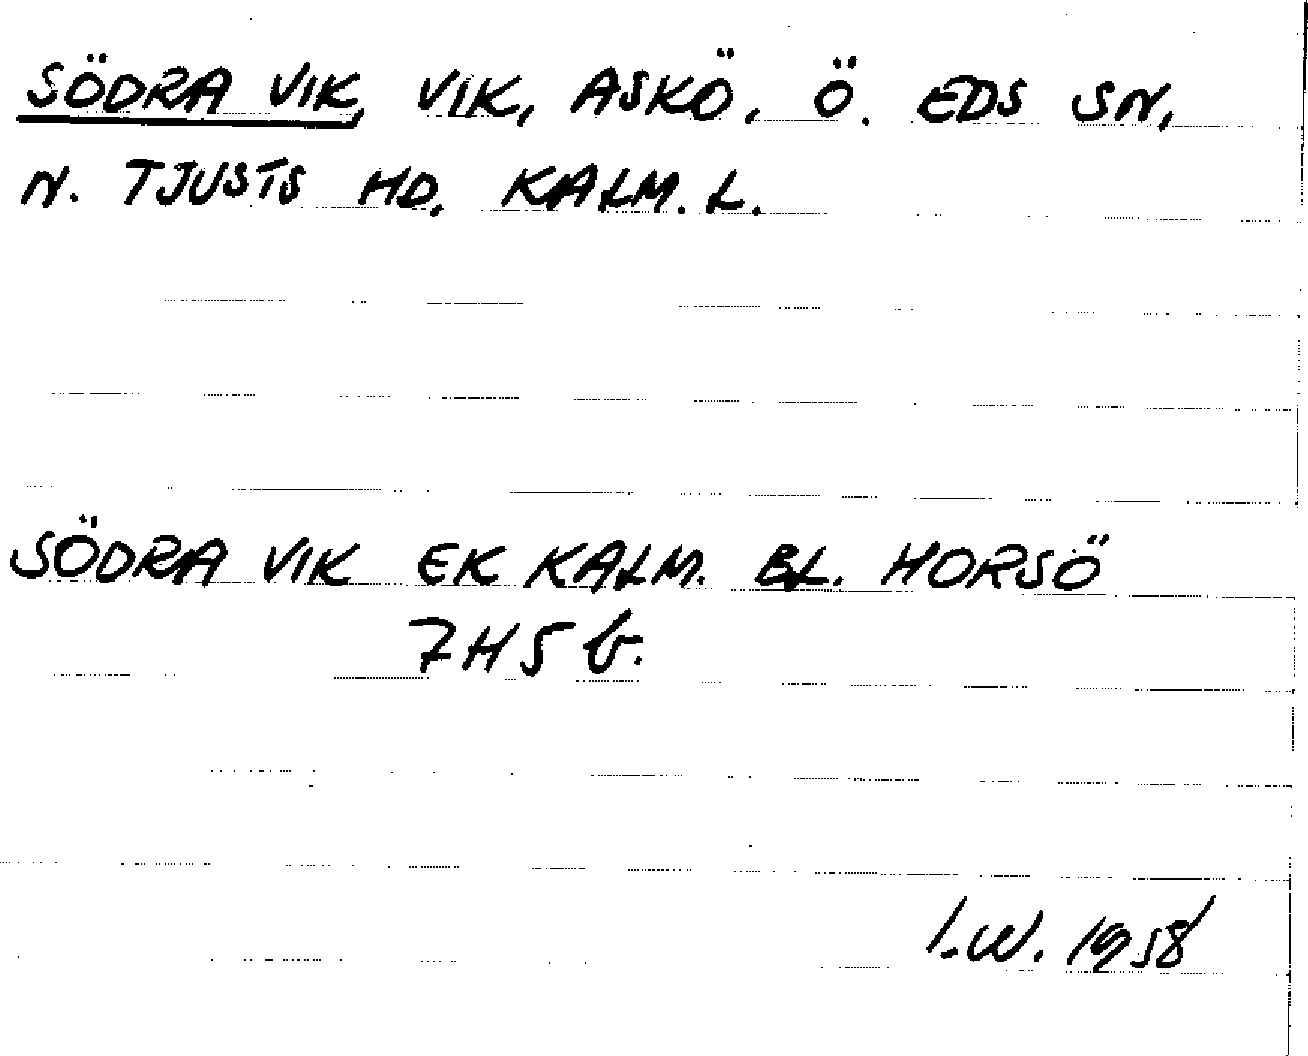 SÖDRA VIK, VIK, ASKÖ, Ö. EDS SN,
N. TJUSTS HD. KALM. L.
SÖDRA VIK EK KALM. BL. HORSÖ
7H5 b.
I.W. 1958